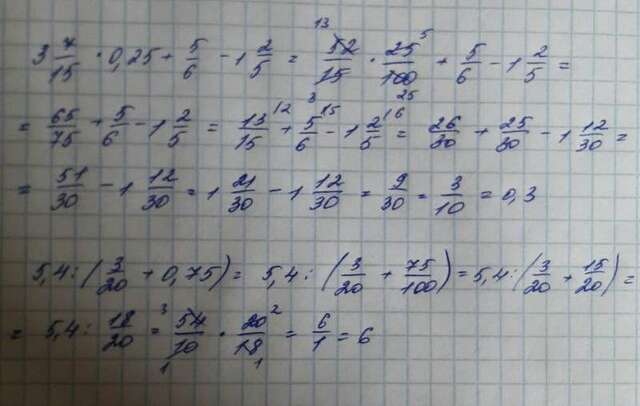 3 7/15 · 0,25 + 5/6 - 1 2/5 = 52/15 · 25/100 + 5/6 - 1 2/5 = 13 5
= 65/75 + 5/6 - 1 2/5 = 13/15 + 5/6 - 1 2/5 = 26/30 + 25/30 - 1 12/30 =
= 51/30 - 1 12/30 = 1 21/30 - 1 12/30 = 9/30 = 3/10 = 0,3
5,4 : (3/20 + 0,75) = 5,4 : (3/20 + 75/100) = 5,4 : (3/20 + 15/20) =
= 5,4 : 18/20 = 3 54/10 1 · 20/18 2 1 = 6/1 = 6